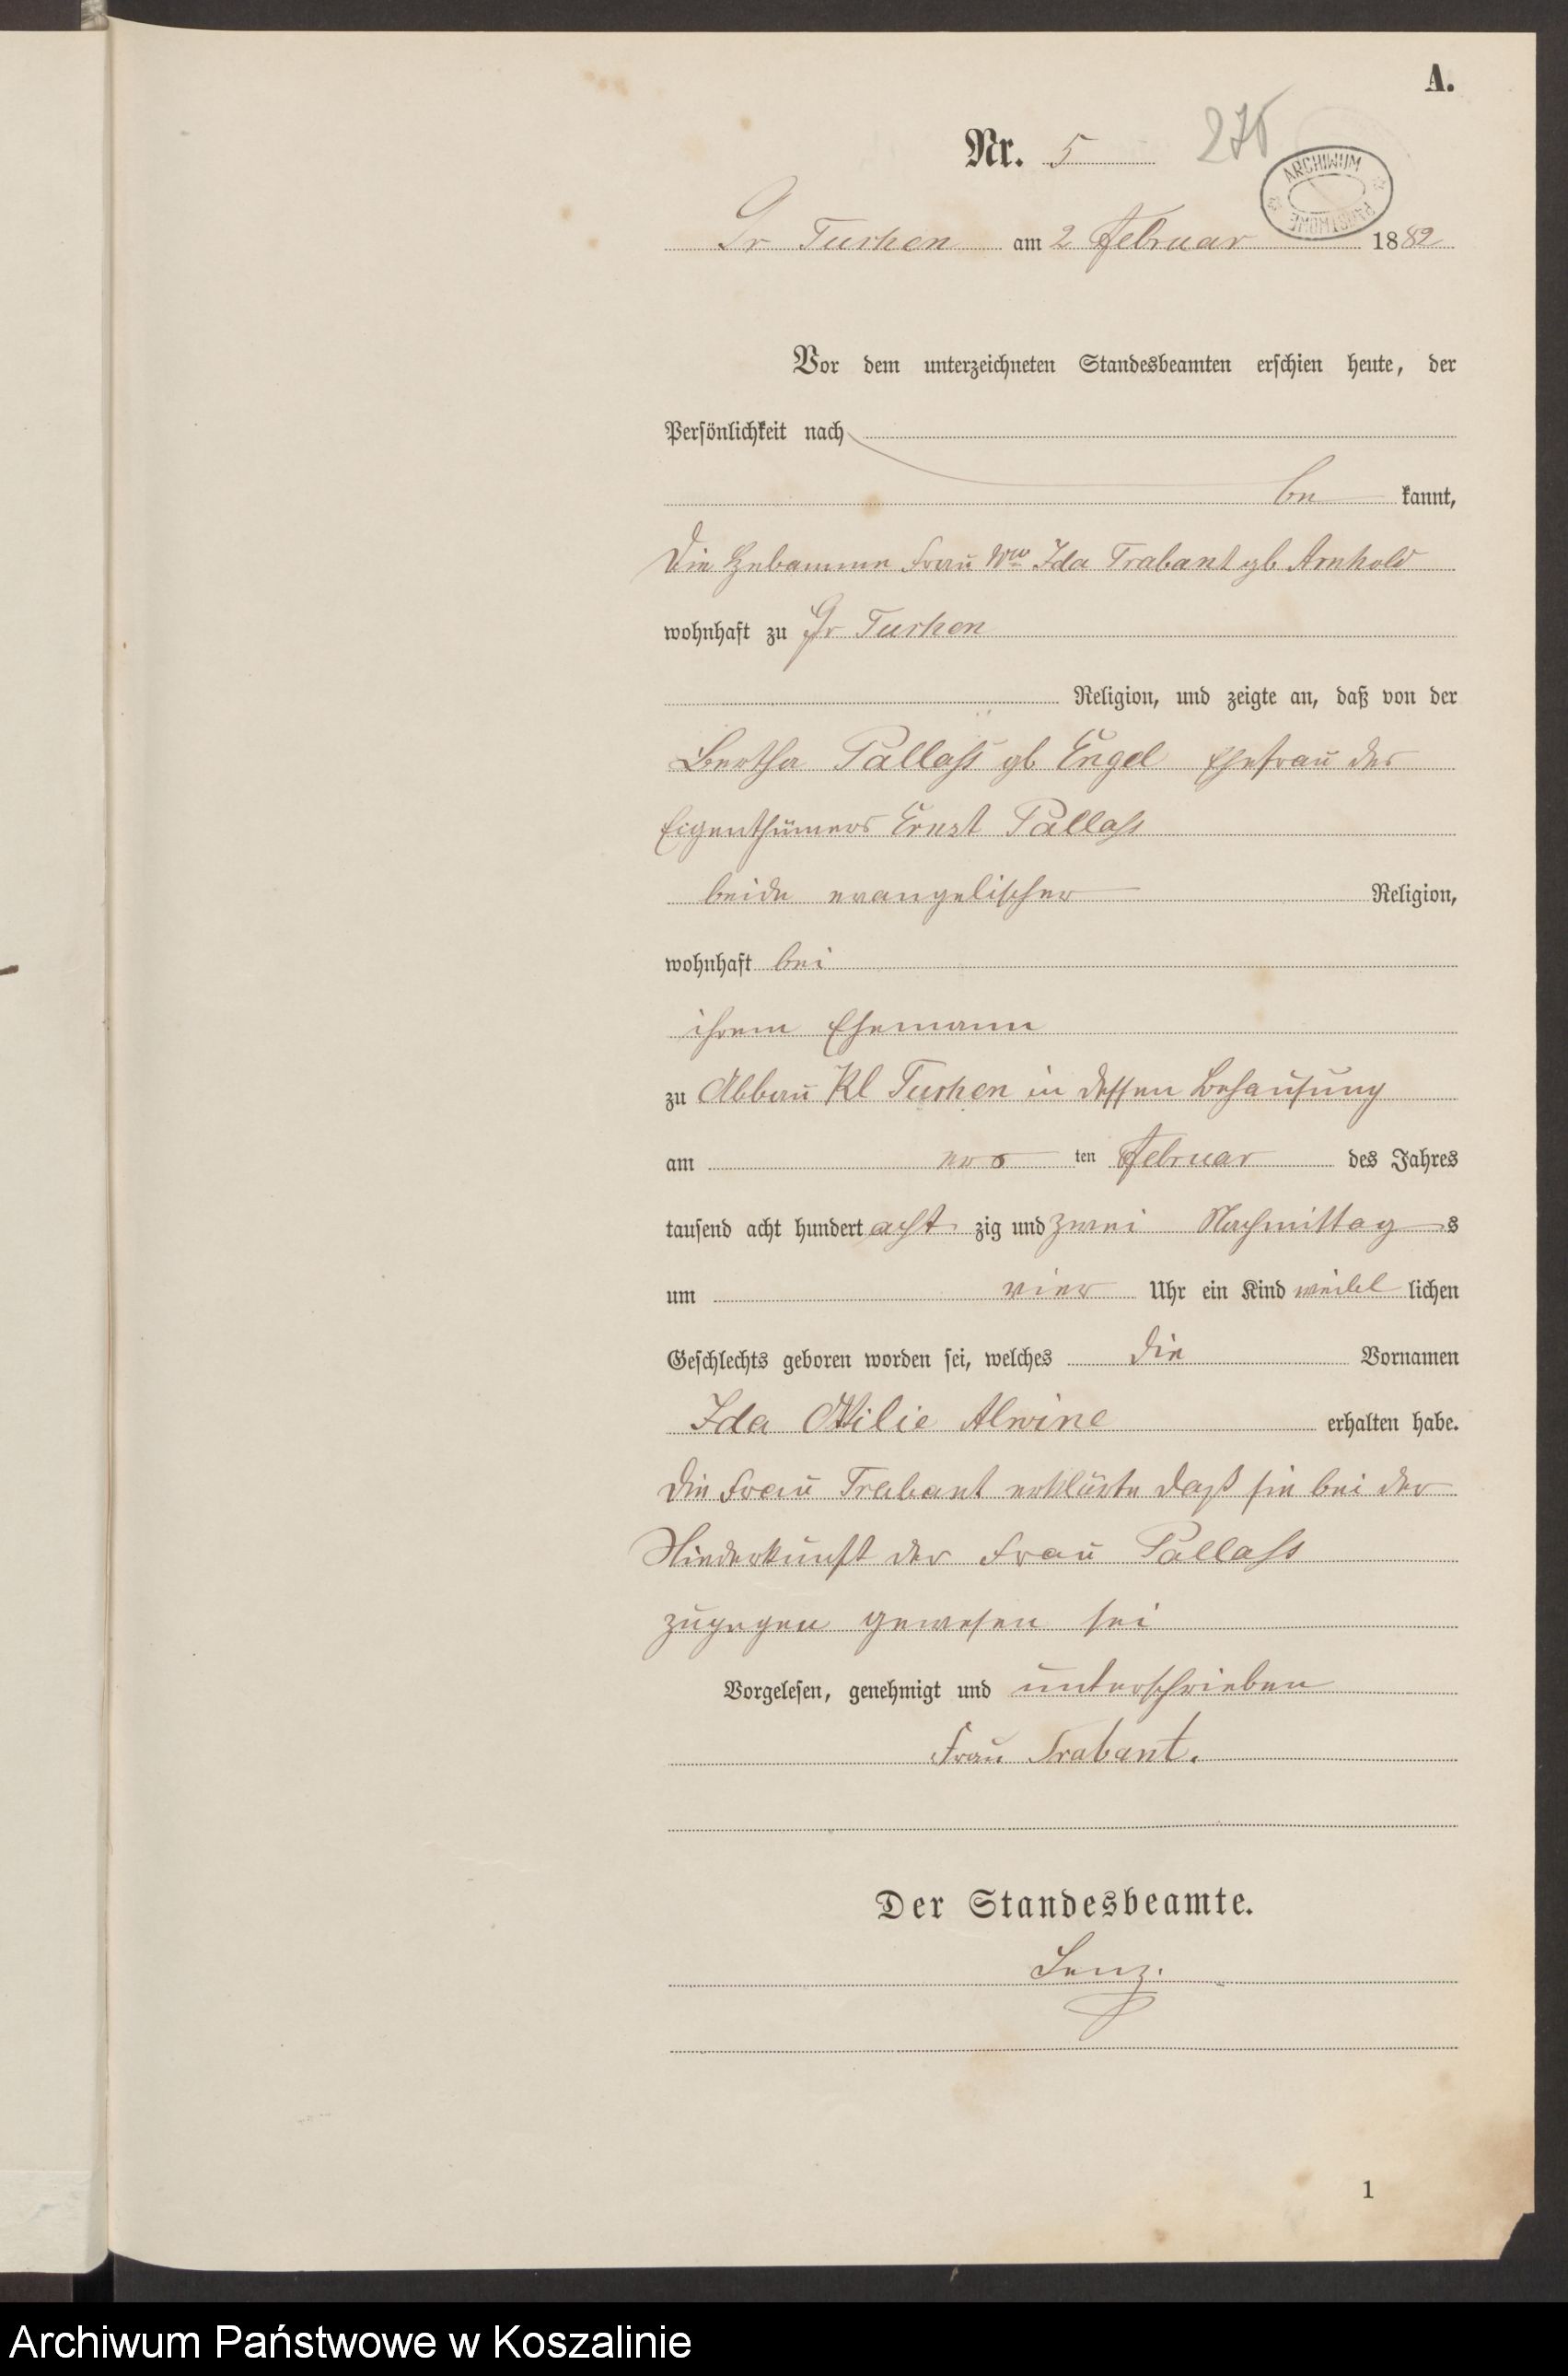 A.
Nr. 5
275
ARCHIWUM PAŃSTWOWE
Gr Tuchen am 2 Februar 1882
Vor dem unterzeichneten Standesbeamten erschien heute, der
Persönlichkeit nach
be kannt,
die Hebamme Frau Ww Ida Trabant gb Arnhold
wohnhaft zu Gr Tuchen
Religion, und zeigte an, daß von der
Bertha Pallaß gb Engel Ehefrau des
Eigenthümers Ernst Pallaß
beide evangelischer Religion,
wohnhaft bei
ihrem Ehemann
zu Abbau Kl Tuchen in dessen Behausung
am ten Februar des Jahres
tausend acht hundert acht zig und zwei Nachmittag s
um vier Uhr ein Kind weibl lichen
Geschlechts geboren worden sei, welches die Vornamen
Ida Ottilie Alwine erhalten habe.
Die Frau Trabant erklärte daß sie bei der
Niederkunft der Frau Pallaß
zugegen gewesen sei
Vorgelesen, genehmigt und unterschrieben
Frau Trabant.
Der Standesbeamte.
Lenz.
1
Archiwum Państwowe w Koszalinie